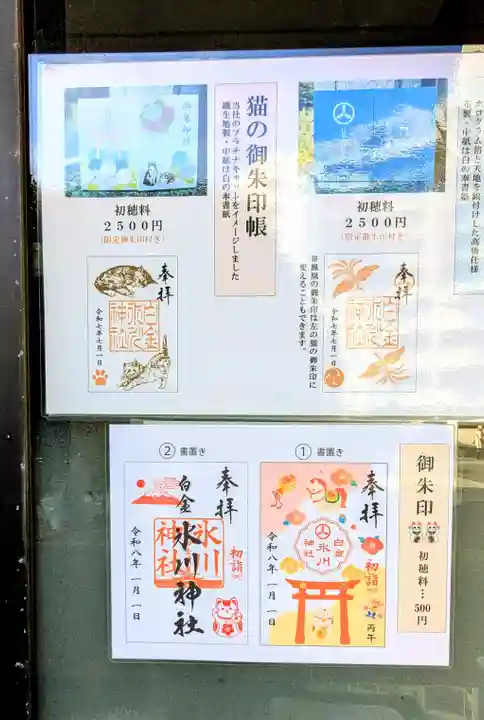 ホログラム箔と天地を銀付けした高級仕様
白の奉書紙
初穂料
2500円
(限定御朱印付き)
※鳳凰の御朱印は左の猫の御朱印に
変えることもできます。
奉拝
白金
氷川
神社
猫の御朱印帳
当社のプラチナキャットをイメージしました
織生地製・中紙は白の奉書紙
初穂料
2500円
(限定御朱印付き)
奉拝
白金
氷川
神社
令和七年七月一日
御朱印
初穂料…500円
① 書置き
奉拝
初詣
丙午
白金
氷川
神社
令和八年一月一日
② 書置き
奉拝
初詣
白金
氷川神社
氷川
神社
令和八年一月一日